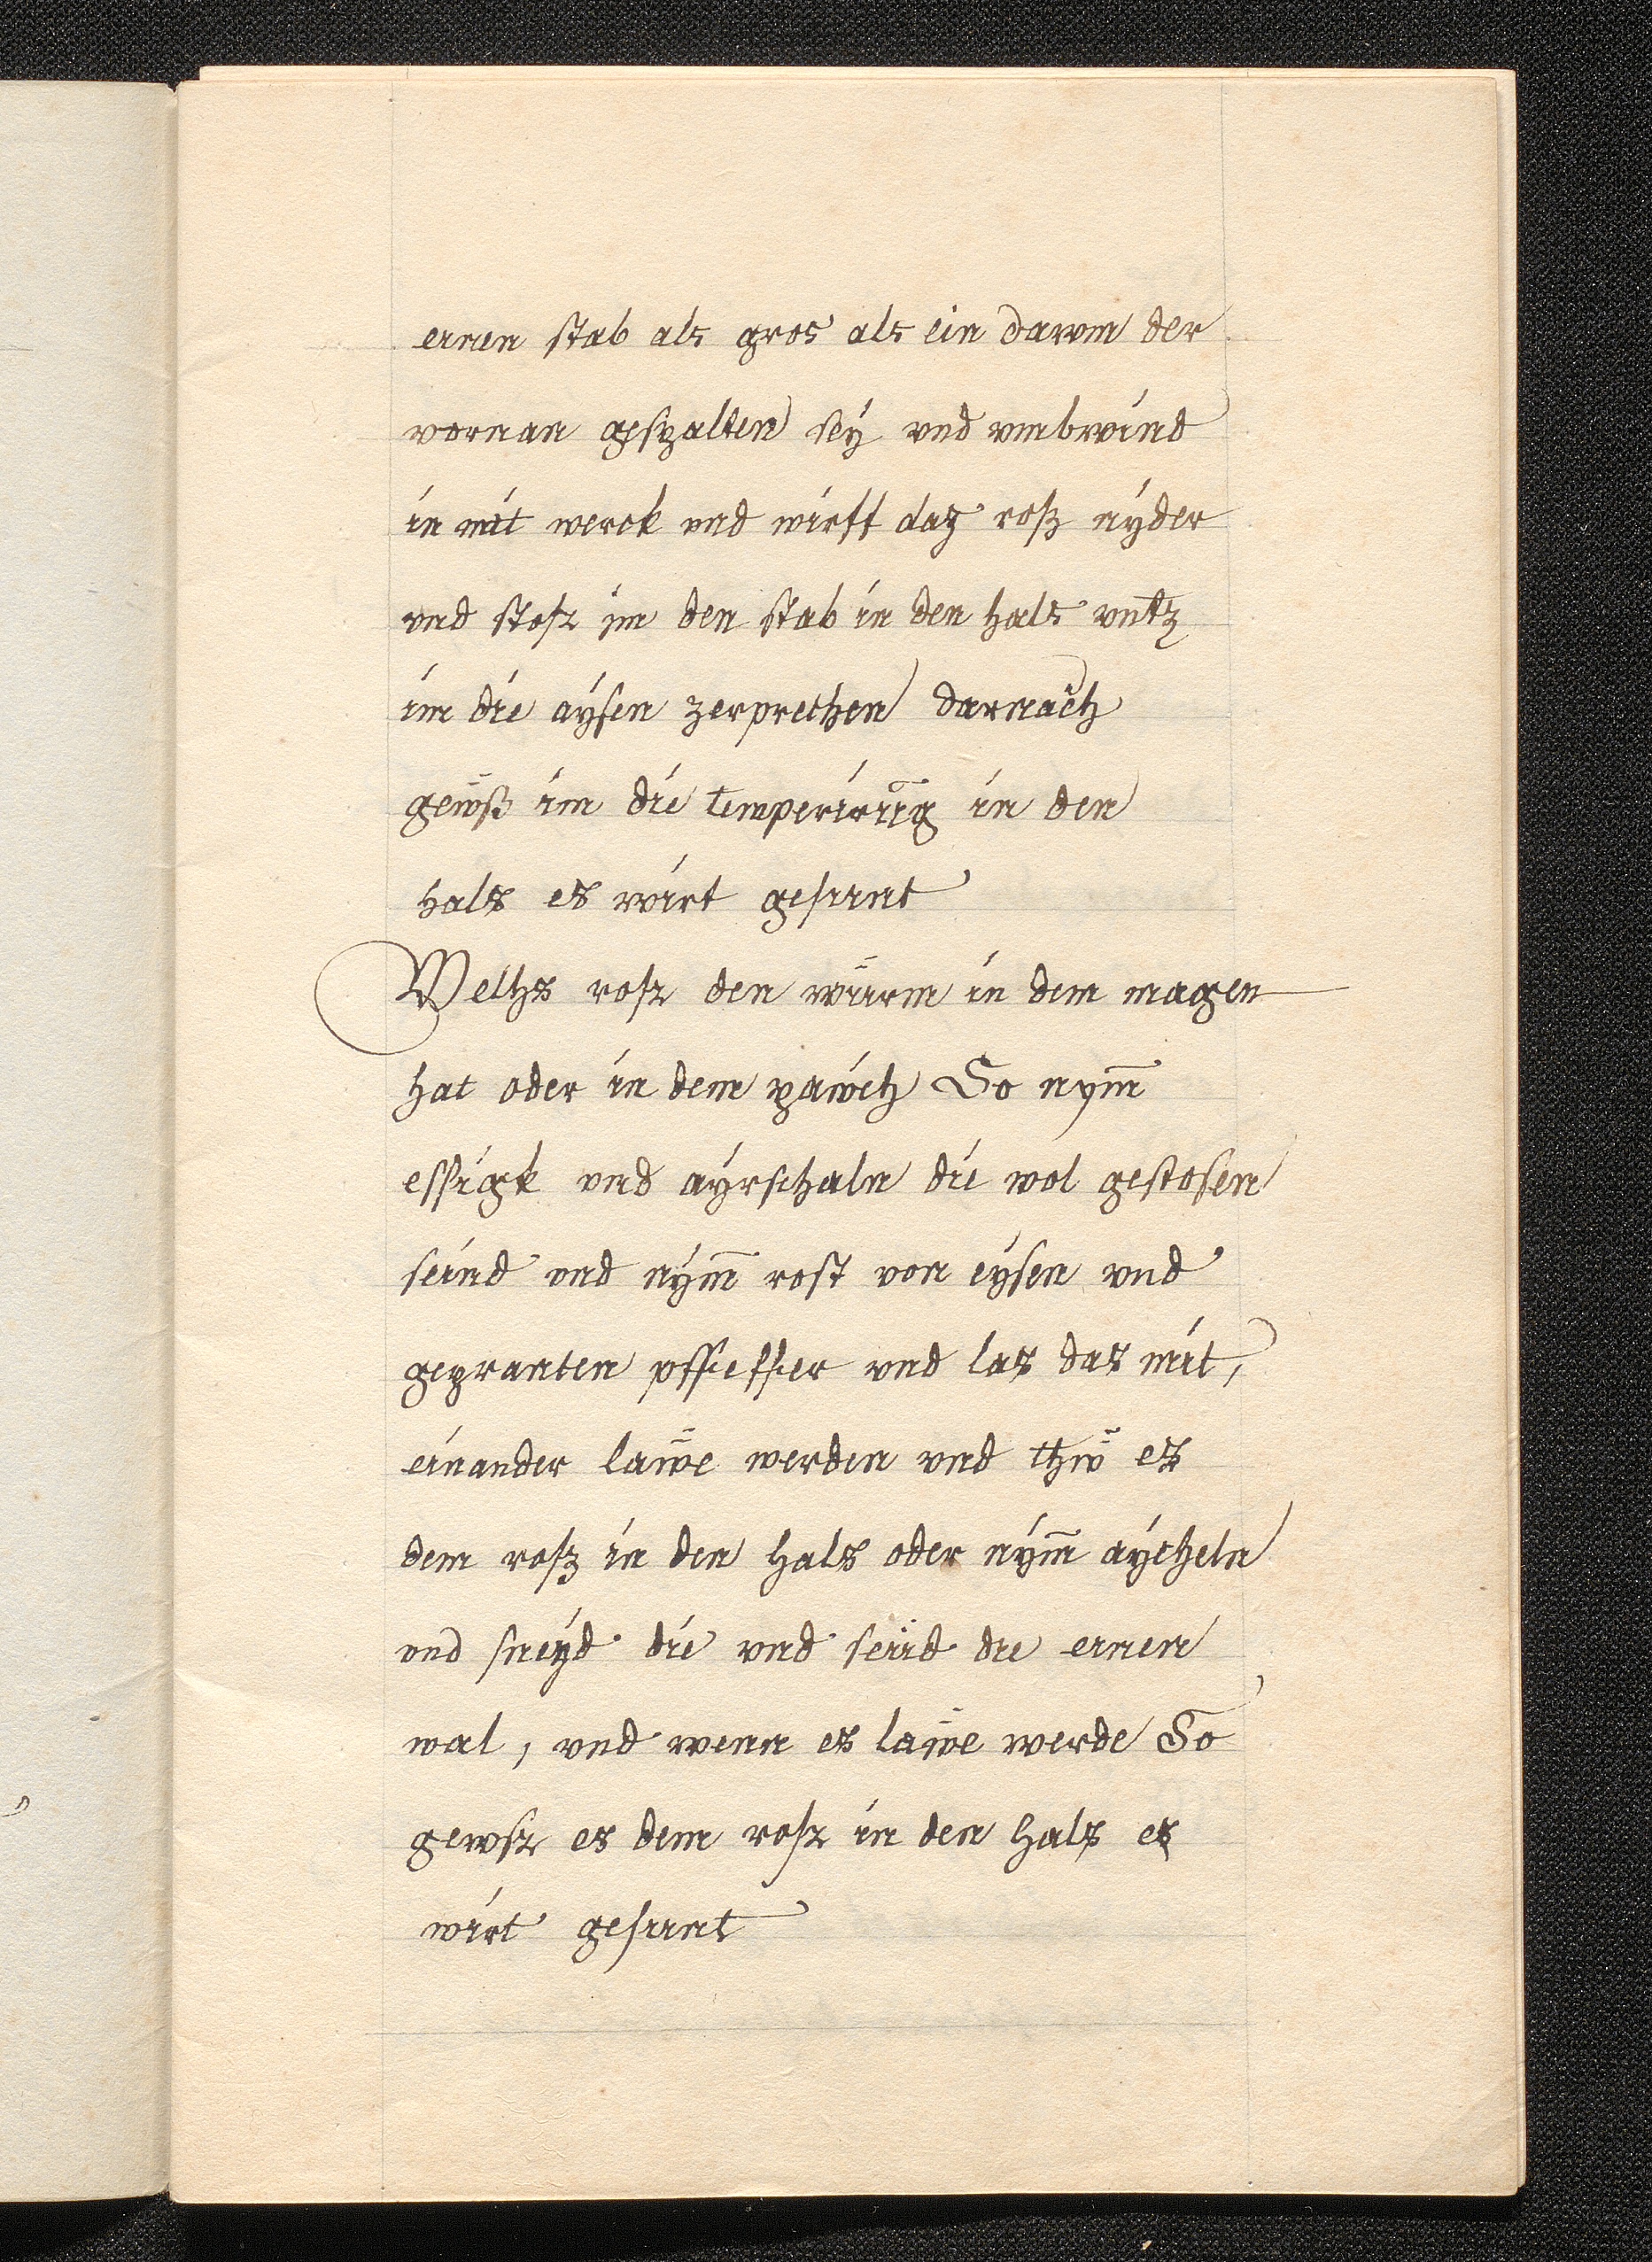 einen stab als gros als ein dawm der
vornan gespalten sey vnd vmbwind
in mit werck vnd wirff daz roß nyder
vnd stosz im den stab in den hals vntz
im die aysen zerprechen darnach
gewß im die temperirūg in den
hals es wirt gesunt
Welhs rosz den würm in dem magen
hat oder in dem pawch So nym̄
essigk vnd ayrschaln die wol gestosen
seind vnd nym̄ rost von eysen vnd
gepranten pffeffer vnd las das mit,
einander laẅe werden vnd thẅ es
dem roß in den hals oder nym̄ aycheln
vnd sneyd die vnd seüd die einen
wal, vnd wenn es laẅe werde So
gewsz es dem rosz in den hals es
wirt gesunt